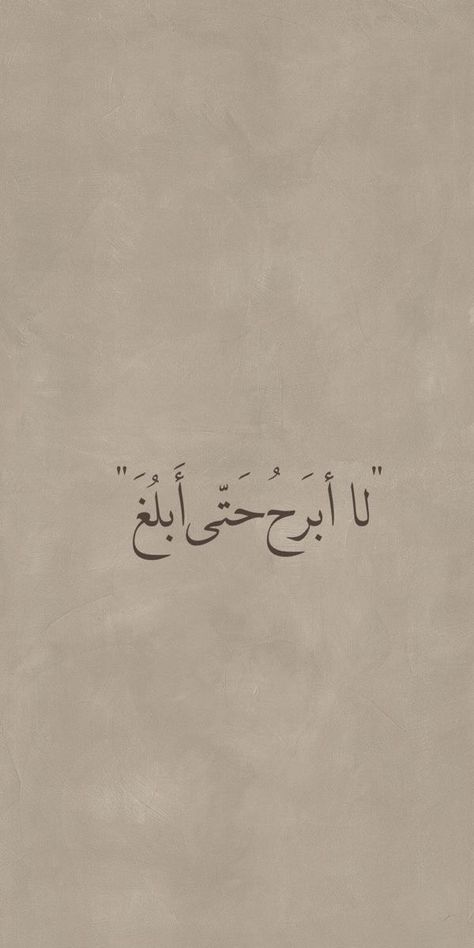 "لا أبَرَحُ حَتّى أَبلُغَ"